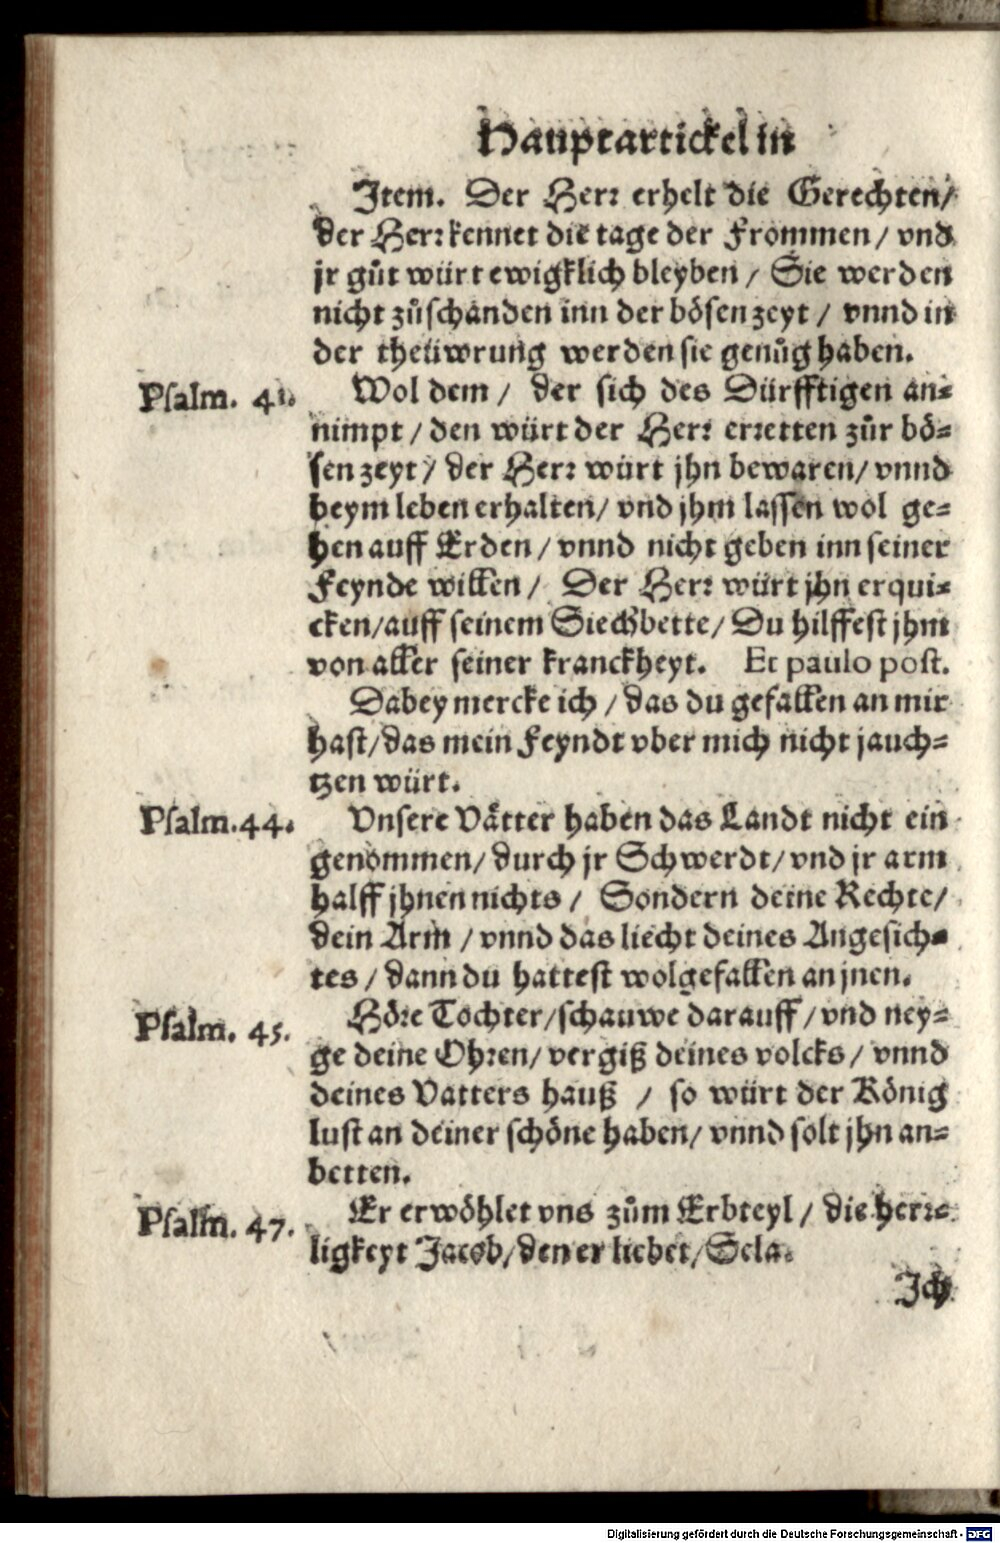 Hauptartickel in
Item. Der Herr erhelt die Gerechten/
der Herr kennet die tage der Frommen / vnd
jr gůt würt ewigklich bleyben / Sie werden
nicht zůschanden inn der bösen zeyt / vnnd in
der theüwrung werden sie genůg haben.
Psalm. 41. Wol dem / der sich des Dürfftigen an=
nimpt / den würt der Herr erretten zůr bö=
sen zeyt / der Herr würt jhn bewaren/ vnnd
beym leben erhalten/ vnd jhm lassen wol ge=
hen auff Erden / vnnd nicht geben inn seiner
Feynde willen / Der Herr würt jhn erqui=
cken/auff seinem Siechbette/ Du hilffest jhm
von aller seiner kranckheyt. Et paulo post.
Dabey mercke ich / das du gefallen an mir
hast/das mein Feyndt vber mich nicht jauch=
tzen würt.
Psalm.44. Vnsere Vätter haben das Landt nicht ein
genommen/ durch jr Schwerdt/ vnd jr arm
halff jhnen nichts / Sondern deine Rechte/
dein Arm / vnnd das liecht deines Angesich=
tes / dann du hattest wolgefallen an jnen.
Psalm. 45. Höre Tochter/schauwe darauff / vnd ney=
ge deine Ohren/ vergiß deines volcks / vnnd
deines Vatters hauß / so würt der König
lust an deiner schöne haben/ vnnd solt jhn an=
betten.
Psalm. 47. Er erwöhlet vns zům Erbteyl / die herr=
ligkeyt Jacob/den er liebet/Sela.
Ich
Digitalisierung gefördert durch die Deutsche Forschungsgemeinschaft - DFG